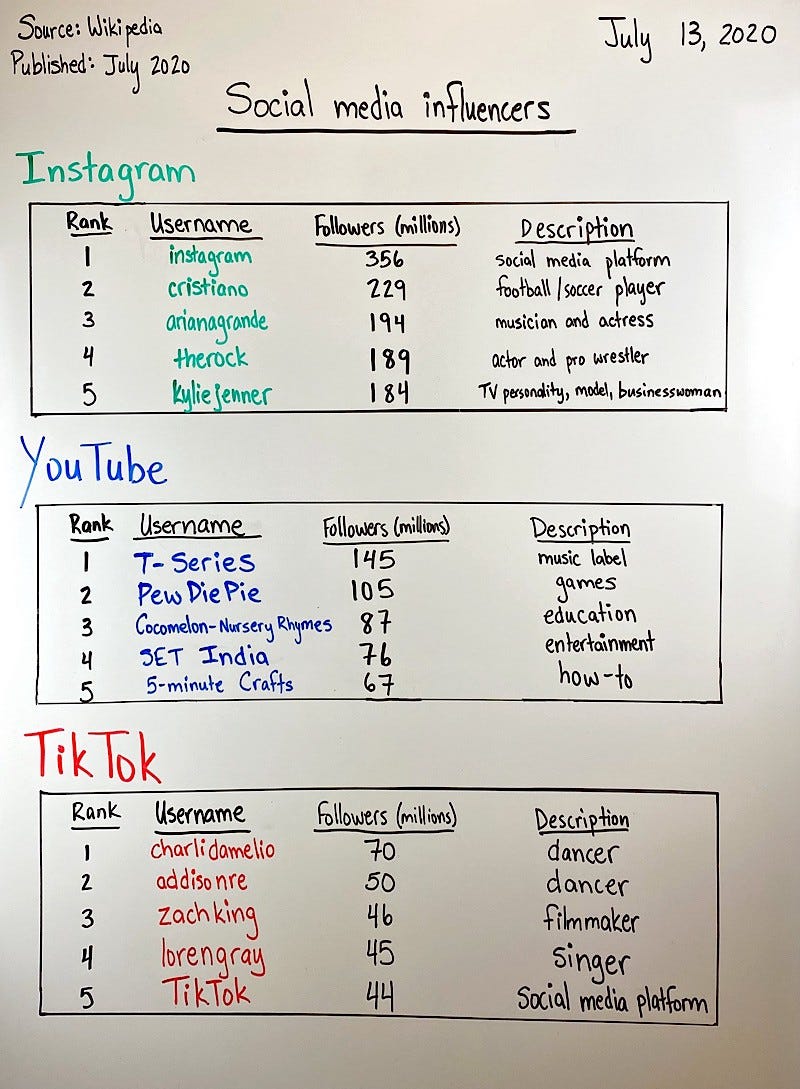 Source: Wikipedia
July 13, 2020
Published: July 2020
Social media influencers
Instagram
Rank Username Followers (millions) Description
1 instagram 356 social media platform
2 cristiano 229 football/soccer player
3 arianagrande 194 musician and actress
4 therock 189 actor and pro wrestler
5 kyliejenner 184 TV personality, model, businesswoman
YouTube
Rank Username Followers (millions) Description
1 T-Series 145 music label
2 PewDiePie 105 games
3 Cocomelon-Nursery Rhymes 87 education
4 SET India 76 entertainment
5 5-minute Crafts 67 how-to
TikTok
Rank Username Followers (millions) Description
1 charlidamelio 70 dancer
2 addisonre 50 dancer
3 zachking 46 filmmaker
4 lorengray 45 singer
5 TikTok 44 Social media platform